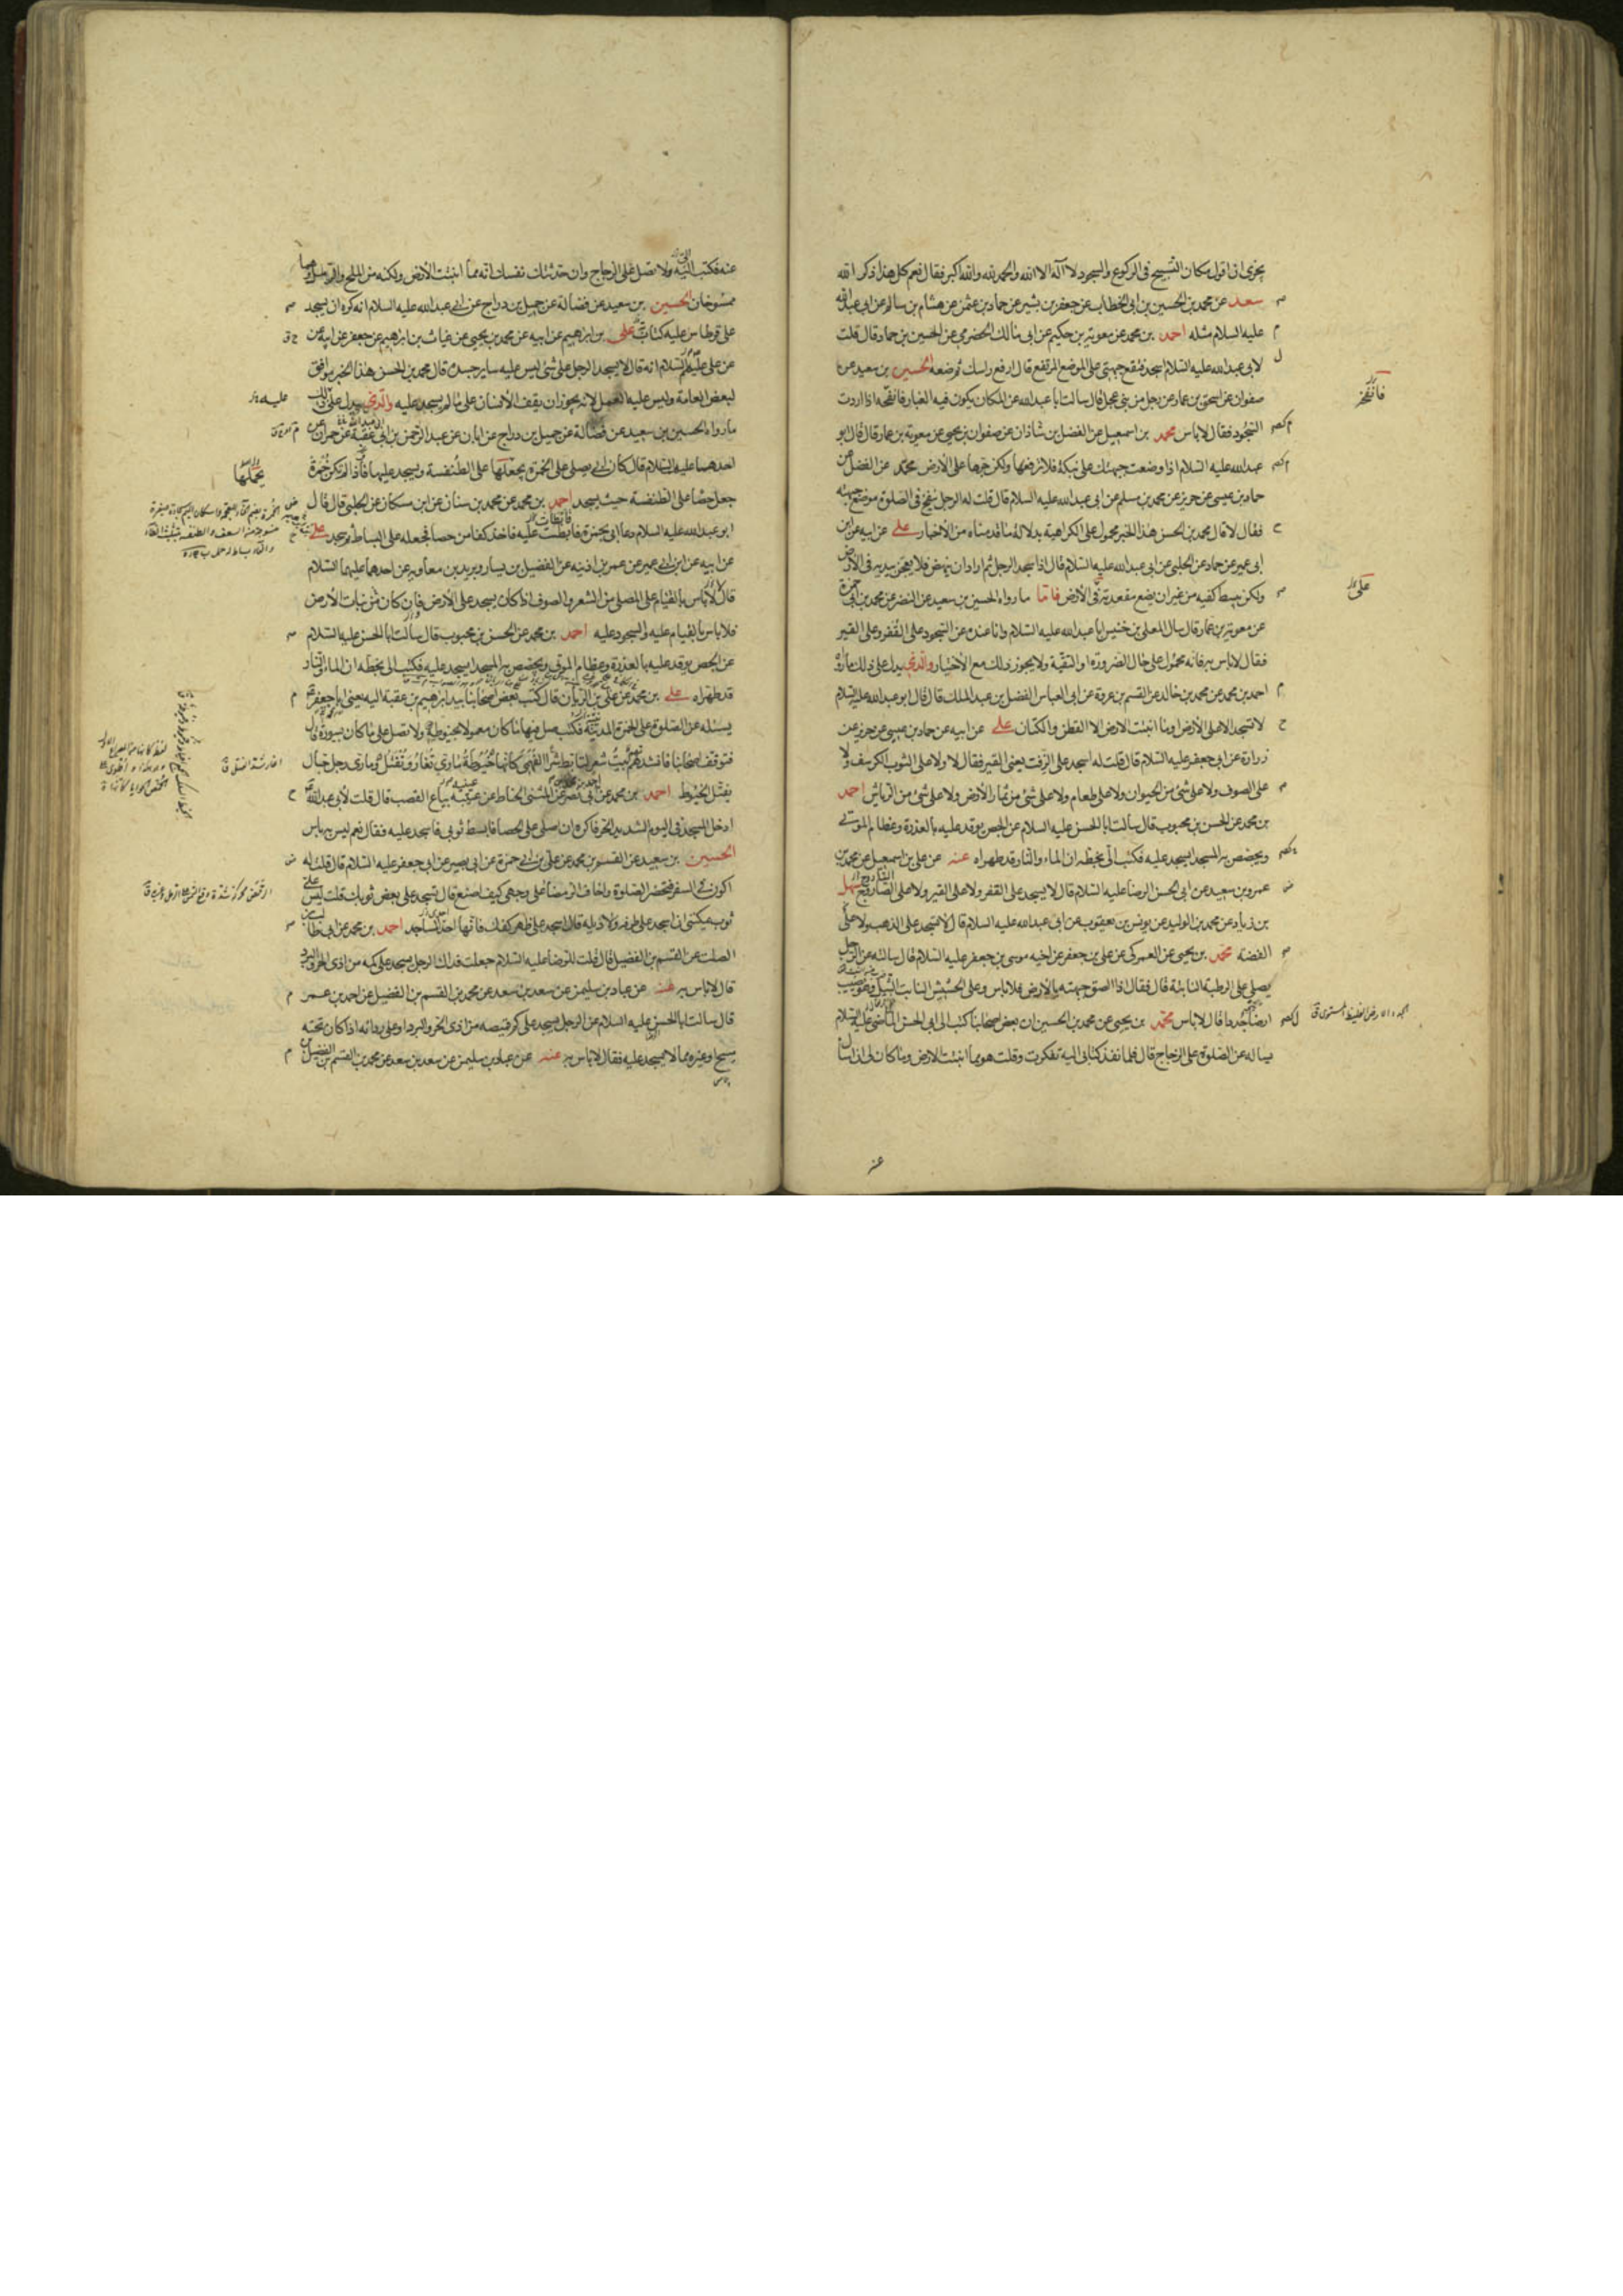 يجزي ان اقول مكان التسبيح في الركوع والسجود لا اله الا الله والحمد لله والله اكبر فقال نعم كل هذا ذكر الله
سعد عن محمد بن الحسين بن ابي الخطاب عن جعفر بن بشير عن حماد بن عثمن عن هشام بن سالم عن ابي عبد الله
عليه السلام مثله احمد بن محمد عن معوية بن حكيم عن ابي مالك الحضرمي عن الحسين بن حماد قال قلت
لابي عبد الله عليه السلام اسجد فتقع جبهتي على الموضع المرتفع قال ارفع راسك ثم ضعه الحسين بن سعيد عن
صفوان عن اسحق بن عمار عن رجل من بني عجل قال سالت ابا عبد الله عن المكان يكون فيه الغبار فانفخه اذا اردت
السجود فقال لا باس محمد بن اسمعيل عن الفضل بن شاذان عن صفوان بن يحيى عن معوية بن عمار قال قال ابو
عبد الله عليه السلام اذا وضعت جبهتك على نبكة فلا ترفعها ولكن جرها على الارض محمد عن الفضل عن
حماد بن عيسى عن حريز عن محمد بن مسلم عن ابي عبد الله عليه السلام قال قلت له الرجل ينفخ في الصلوة موضع جبهته
فقال لا قال محمد بن الحسن هذا الخبر محمول على الكراهية بدلالة ما قدمناه من الاخبار علي عن ابيه عن ابن
ابي عمير عن حماد عن الحلبي عن ابي عبد الله عليه السلام قال اذا سجد الرجل ثم اراد ان ينهض فلا يعجن بيديه في الارض
ولكن يبسط كفيه من غير ان يضع مقعدته في الارض فاما ما رواه الحسين بن سعيد عن النضر عن محمد بن ابي حمزة
عن معوية بن عمار قال سال المعلى بن خنيس ابا عبد الله عليه السلام وانا عنده عن السجود على القفر وعلى القير
فقال لا باس به فانه محمول على حال الضرورة او التقية ولا يجوز ذلك مع الاختيار والذي يدل على ذلك ما رواه
احمد بن محمد عن محمد بن خالد عن القسم بن عروة عن ابي العباس الفضل بن عبد الملك قال قال ابو عبد الله عليه السلام
لا تسجد الا على الارض او ما انبتت الارض الا القطن والكتان علي عن ابيه عن حماد بن عيسى عن حريز عن
زرارة عن ابي جعفر عليه السلام قال قلت له اسجد على الزفت يعني القير فقال لا ولا على الثوب الكرسف ولا
على الصوف ولا على شئ من الحيوان ولا على طعام ولا على شئ من ثمار الارض ولا على شئ من الرياش احمد
بن محمد عن الحسن بن محبوب قال سالت ابا الحسن عليه السلام عن الجص يوقد عليه بالعذرة وعظام الموتى
ويجصص به المسجد ايسجد عليه فكتب الي بخطه ان الماء والنار قد طهراه عنه عن علي بن اسمعيل عن محمد بن
عمرو بن سعيد عن ابي الحسن الرضا عليه السلام قال لا يسجد على القفر ولا على القير ولا على الصاروج سهل
بن زياد عن محمد بن الوليد عن يونس بن يعقوب عن ابي عبد الله عليه السلام قال لا تسجد على الذهب ولا على
الفضة محمد بن يحيى عن العمركي عن علي بن جعفر عن اخيه موسى بن جعفر عليه السلام قال سالته عن الرجل
يصلي على الرطبة النابتة قال فقال اذا الصق جبهته بالارض فلا باس وعلى الحشيش النابت الثيل وهو يصيب
ارضا جددا قال لا باس محمد بن يحيى عن محمد بن الحسين ان بعض اصحابنا كتب الى ابي الحسن الماضي عليه السلام
يساله عن الصلوة على الزجاج قال فلما نفذ كتابي اليه تفكرت وقلت هو مما انبتت الارض وما كان لي ان اسال
عنه فكتب اليه ولا تصل على الزجاج وان حدثتك نفسك انه مما انبتت الارض ولكنه من الملح والرمل وهما
ممسوخان الحسين بن سعيد عن فضالة عن جميل بن دراج عن ابي عبد الله عليه السلام انه كره ان يسجد
على قرطاس عليه كتابة علي بن ابراهيم عن ابيه عن محمد بن يحيى عن غياث بن ابراهيم عن جعفر عن ابيه
عن علي عليهم السلام انه قال لا يسجد الرجل على شئ ليس عليه ساير جسده قال محمد بن الحسن هذا الخبر موافق
لبعض العامة وليس عليه العمل لانه يجوز ان يقف الانسان على ما لم يسجد عليه والذي يدل على ذلك
ما رواه الحسين بن سعيد عن فضالة عن جميل بن دراج عن ابان عن عبد الرحمن بن ابي عبد الله عن حمران عن
احدهما عليهما السلام قال كان ابي يصلي على الخمرة يجعلها على الطنفسة ويسجد عليها فاذا لم تكن خمرة
جعل حصا على الطنفسة حيث يسجد احمد بن محمد عن محمد بن سنان عن ابن مسكان عن الحلبي قال قال
ابو عبد الله عليه السلام دعا ابي بخمرة فابطئت عليه فاخذ كفا من حصا فجعله على البساط ثم سجد علي
عن ابيه عن ابن ابي عمير عن عمر بن اذينه عن الفضيل بن يسار وبريد بن معاوية عن احدهما عليهما السلام
قال لا باس بالقيام على المصلى من الشعر والصوف اذا كان يسجد على الارض فان كان من نبات الارض
فلا باس بالقيام عليه والسجود عليه احمد بن محمد عن الحسن بن محبوب قال سالت ابا الحسن عليه السلام
عن الجص يوقد عليه بالعذرة وعظام الموتى ويجصص به المسجد ايسجد عليه فكتب الي بخطه ان الماء والنار
قد طهراه علي بن محمد عن علي بن الريان قال كتب بعض اصحابنا بيد ابراهيم بن عقبة اليه يعني ابا جعفر
يسئله عن الصلوة على الخمرة المدنية فكتب صل فيها ما كان معمولا بخيوطة ولا تصل على ما كان بسيورة قال
فتوقف اصحابنا فانشدتهم بيت شعر لتابط شرا الفهمي كانها خيوطة ماري تغار وتفتل وماري رجل حبال
يفتل الخيوط احمد بن محمد عن ابي نصر عن المثنى الحناط عن عيينة بياع القصب قال قلت لابي عبد الله
ادخل المسجد في اليوم الشديد الحر فاكره ان اصلي على الحصا فابسط ثوبي فاسجد عليه فقال نعم ليس به باس
الحسين بن سعيد عن القسم بن محمد عن علي بن ابي حمزة عن ابي بصير عن ابي جعفر عليه السلام قال قلت له
اكون في السفر فتحضر الصلوة واخاف الرمضا على وجهي كيف اصنع قال تسجد على بعض ثوبك قلت ليس علي
ثوب يمكنني ان اسجد على طرفه ولا ذيله قال اسجد على ظهر كفك فانها احد المساجد احمد بن محمد عن ابي طالب بن
الصلت عن القسم بن الفضيل قال قلت للرضا عليه السلام جعلت فداك الرجل يسجد على كمه من اذى الحر والبرد
قال لا باس به عنه عن عباد بن سليمن عن سعد بن سعد عن محمد بن القسم بن الفضيل عن احمد بن عمر
قال سالت ابا الحسن عليه السلام عن الرجل يسجد على كم قميصه من اذى الحر والبرد او على ردائه اذا كان تحته
مسح او غيره مما لا يسجد عليه فقال لا باس به عنه عن عباد بن سليمن عن سعد بن سعد عن محمد بن القسم بن الفضيل